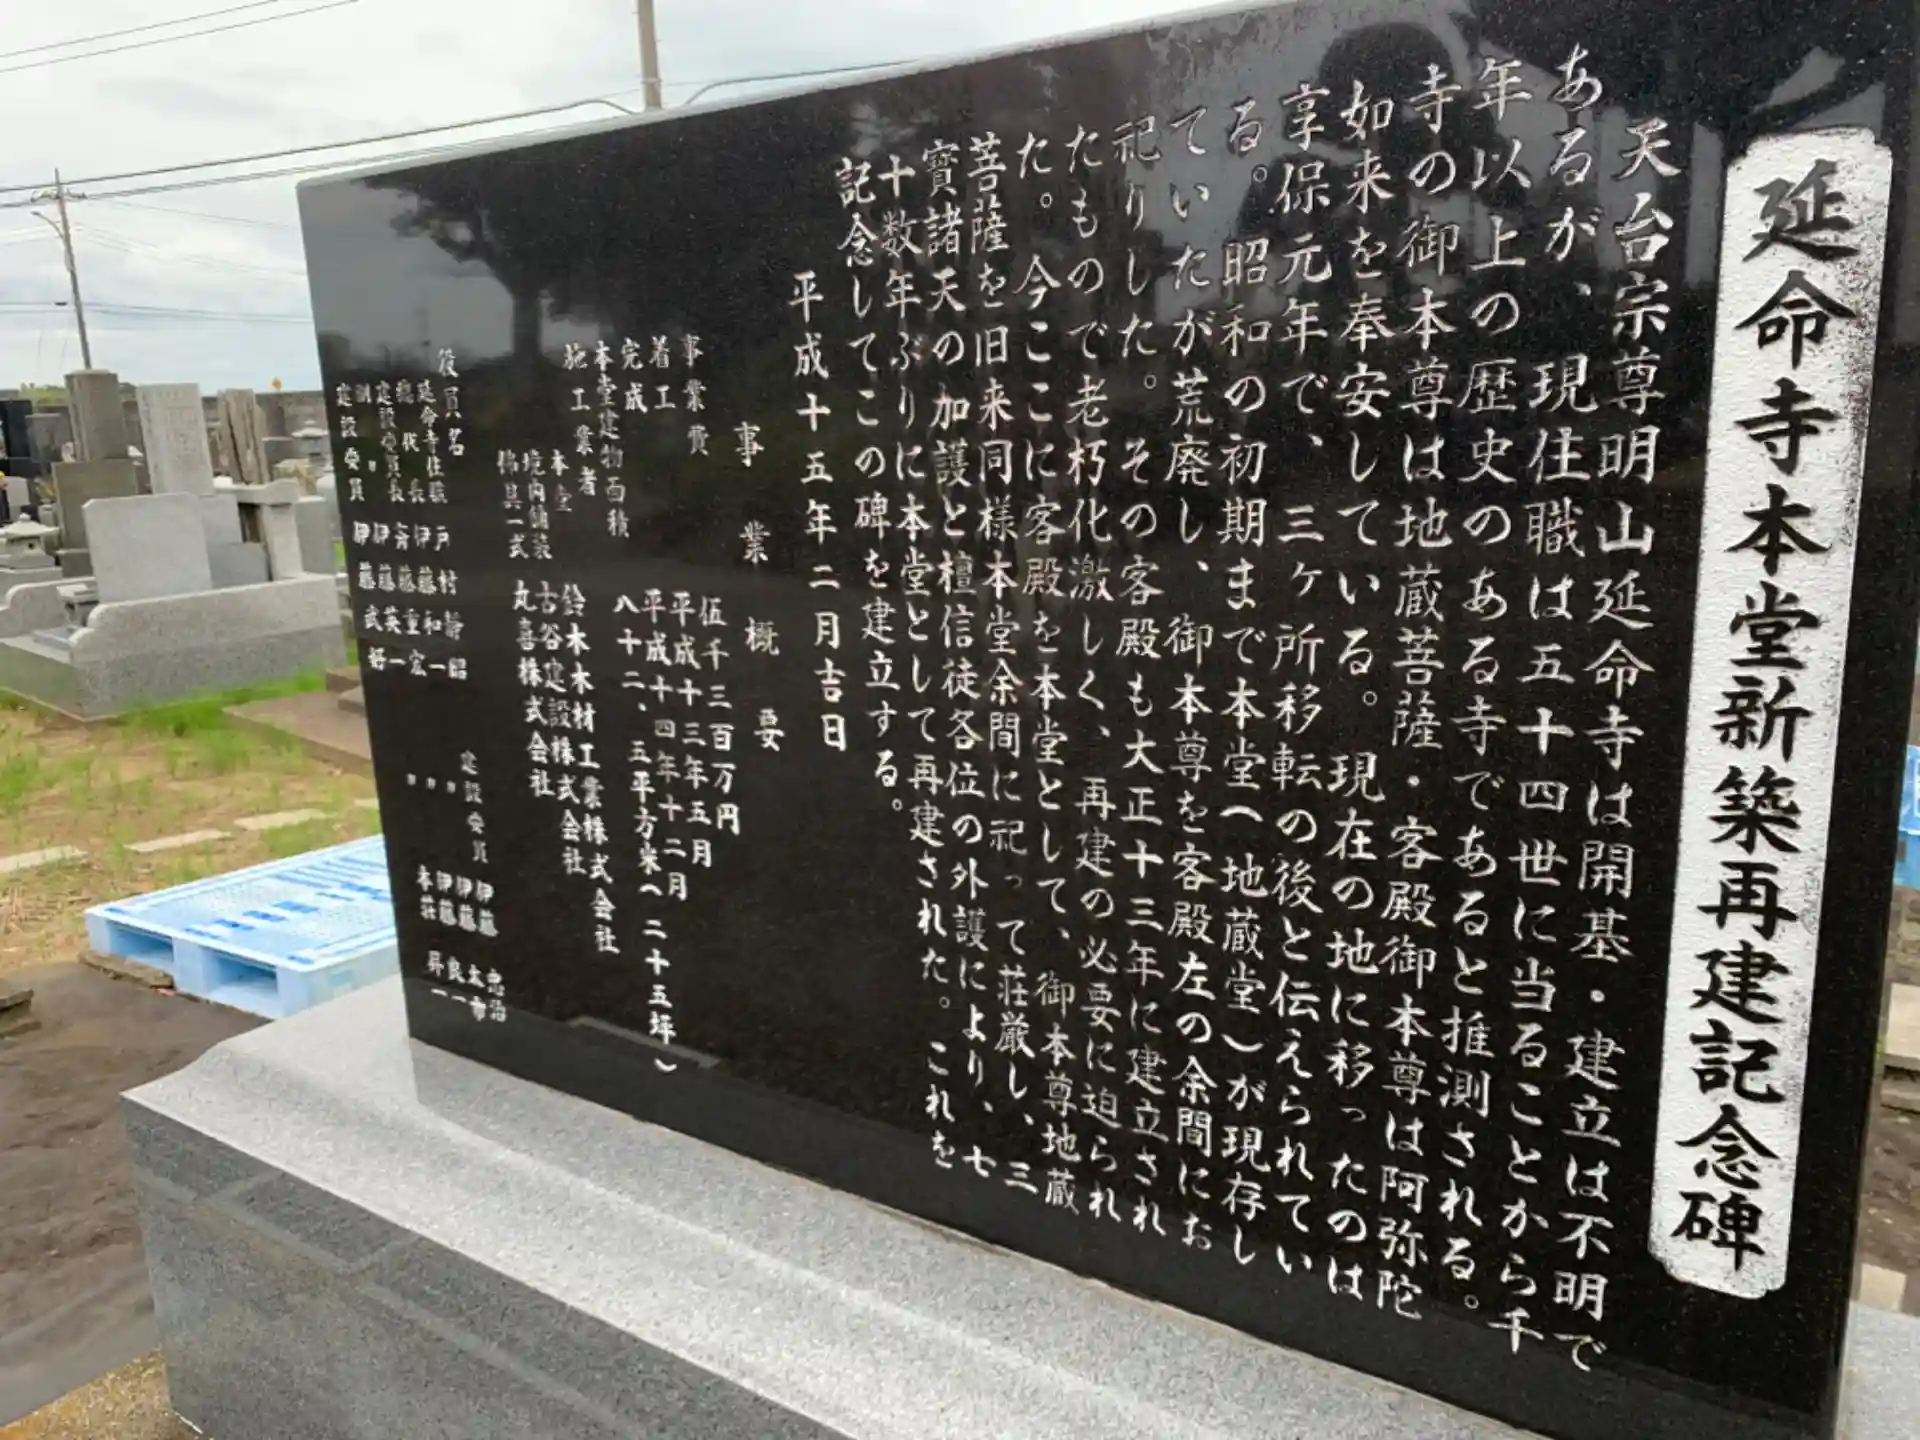 延命寺本堂新築再建記念碑
天台宗尊明山延命寺は開基・建立は不明で
あるが、現住職は五十四世に当ることから千
年以上の歴史のある寺であると推測される。
寺の御本尊は地蔵菩薩・客殿御本尊は阿弥陀
如来を奉安している。現在の地に移ったのは
享保元年で、三ヶ所移転の後と伝えられてい
る。昭和の初期まで本堂（地蔵堂）が現存し
ていたが荒廃し、御本尊を客殿左の余間にお
祀りした。その客殿も大正十三年に建立され
たもので老朽化激しく、再建の必要に迫られ
た。今ここに客殿を本堂として、御本尊地蔵
菩薩を旧来同様本堂余間に祀って荘厳し、三
寳諸天の加護と檀信徒各位の外護により、七
十数年ぶりに本堂として再建された。これを
記念してこの碑を建立する。
平成十五年二月吉日
事業概要
事業費 伍千三百万円
着工 平成十三年五月
完成 平成十四年十二月
本堂建物面積 八十二、五平方米（二十五坪）
施工業者
本堂 鈴木木材工業株式会社
境内舗装 古谷建設株式会社
佛具一式 丸喜株式会社
役員名
延命寺住職 戸村静昭
総代長 伊藤和一
建設委員長 斉藤重宏
副〃 伊藤英一
建設委員 伊藤武好
建設委員 伊藤忠治
〃 伊藤太市
〃 伊藤良一
〃 本荘昇一